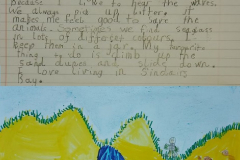 because I like to hear the waves.
We always pick up litter. It
makes me feel good to save the
animals. Sometimes we find seaglass
in lots of different colours. I
keep them in a jar. My favourite
thing to do is climb up the
sand dunes and slide down.
I love living in Sinclairs
Bay.